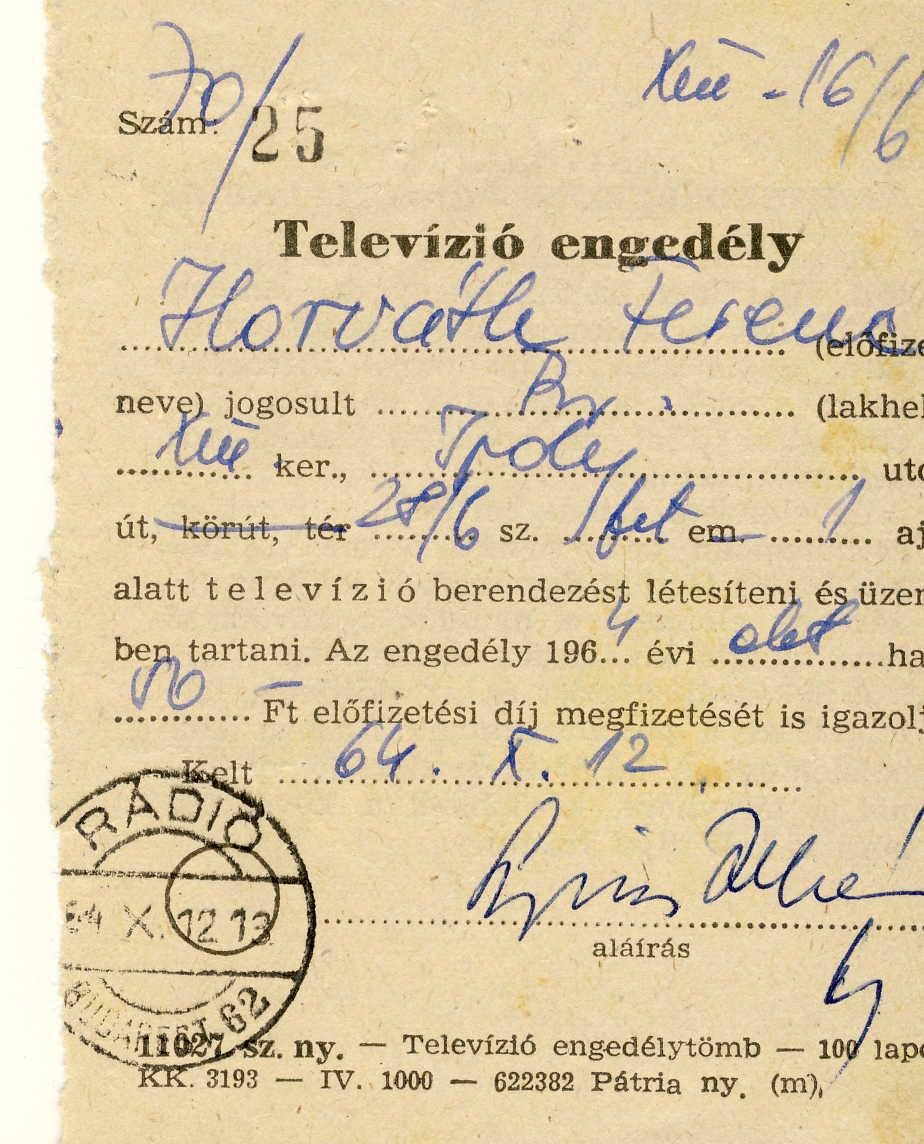 70/
XIII - 16/6
Szám: 25
Televízió engedély
Horváth Ferenc (előfize
neve) jogosult Bp. (lakhel
XIII ker., Ipoly utc
út, körút, tér 28/b sz. fst em. 1 aj
alatt televízió berendezést létesíteni és üzem
ben tartani. Az engedély 1964 évi okt ha
50 Ft előfizetési díj megfizetését is igazolj
Kelt 64. X. 12
RÁDIÓ
64 X. 12 13
BUDAPEST 62
aláírás
11027 sz. ny. — Televízió engedélytömb — 100 lapo
KK. 3193 — IV. 1000 — 622382 Pátria ny. (m),